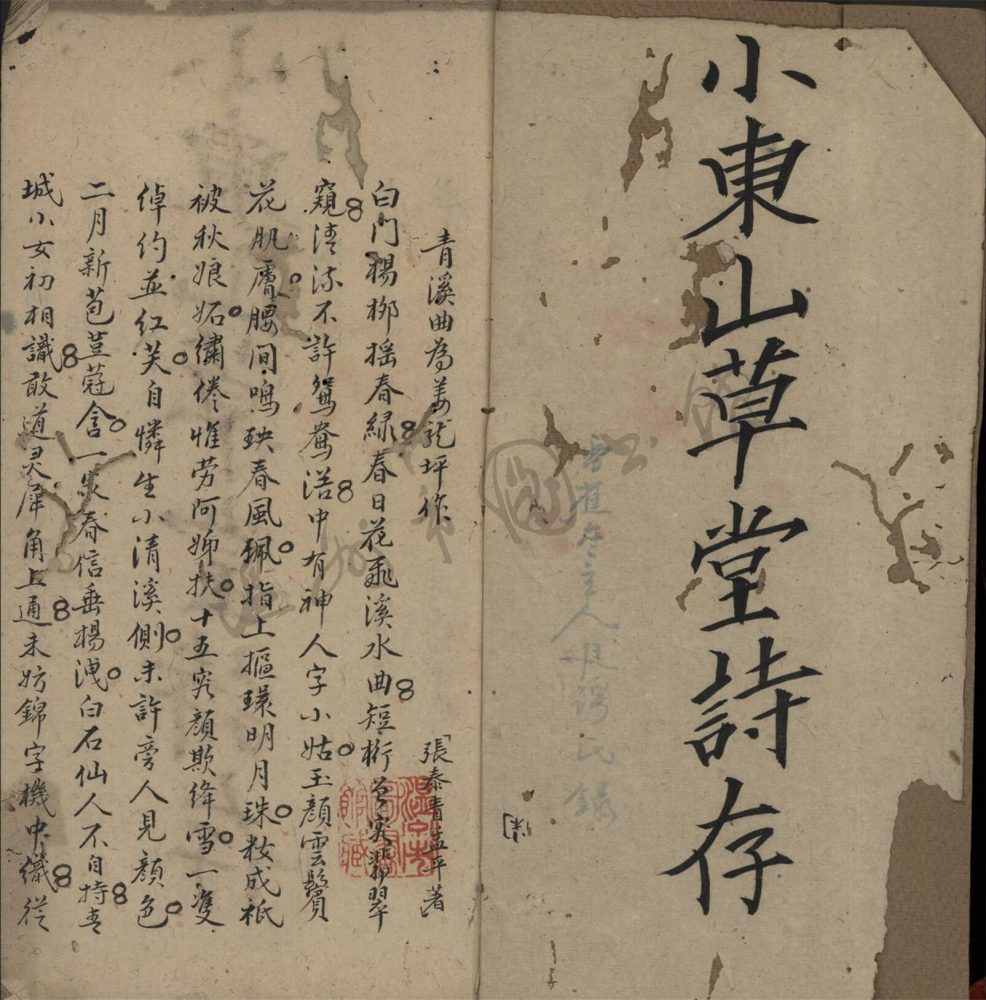 小東山草堂詩存
主人
氏錄
青溪曲為姜龍坪作
張泰青孟平著
白門楊柳搖春綠春日花飛溪水曲短桁曾窺翡翠
窺清流不許鴛鴦浴中有神人字小姑玉顏雲鬢
花肌膚腰間鳴玦春風珮指上摳環明月珠妝成祇
被秋娘妬繡倦惟勞阿姊扶十五容顏欺絳雪一雙
倬約並紅芙自憐生小清溪側未許旁人見顏色
二月新苞荳蔻含一冬春信垂楊洩白石仙人不自持青
城小女初相識敢道灵犀角上通未妨錦字機中織從